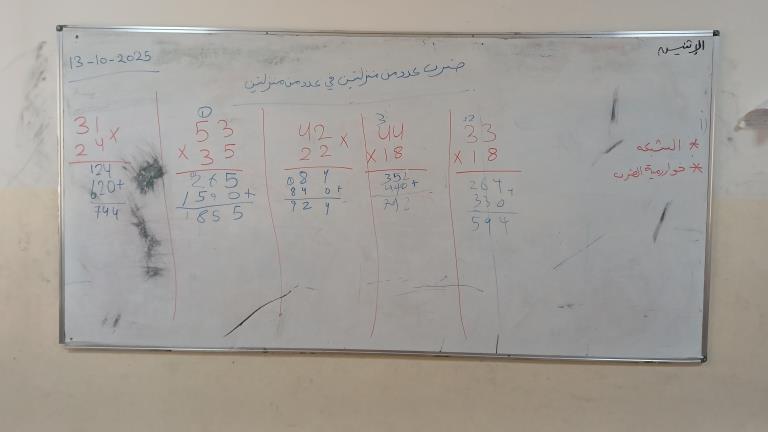 الإثنين
13-10-2025
ضرب عدد من منزلتين في عدد من منزلتين
* الشبكه
* خوارزمية الضرب
12
33
× 18
264
330 +
594
3
44
× 18
352
440 +
792
42 ×
22
084
840 +
924
1
53
× 35
265
1590 +
1855
31 ×
24
124
620 +
744